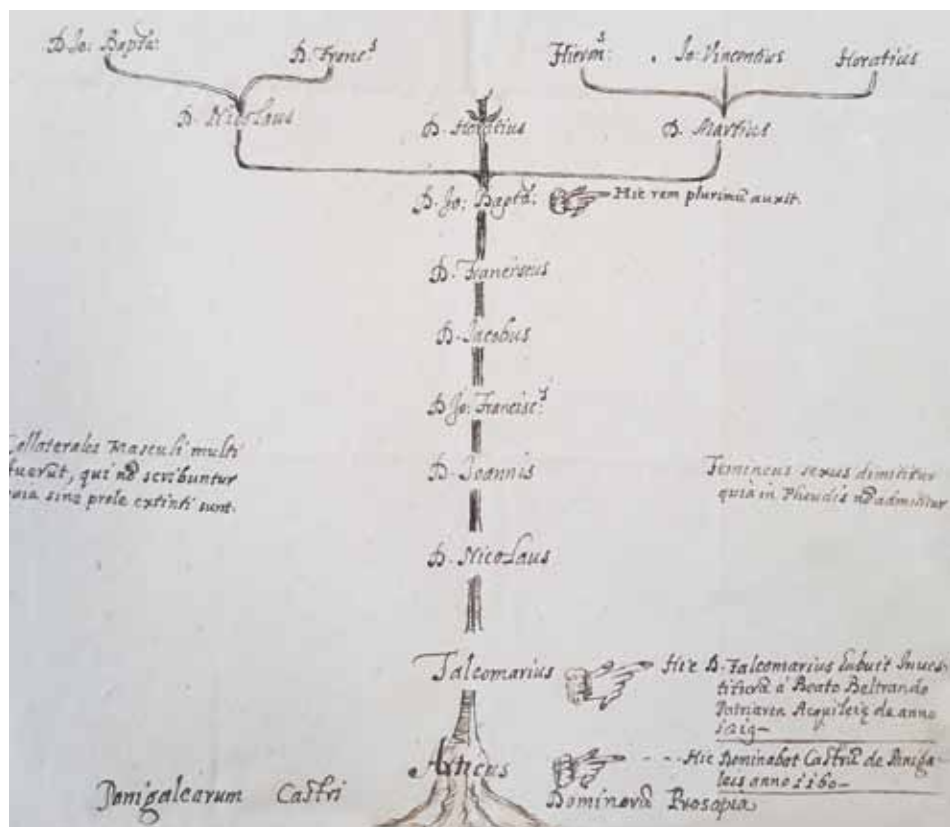 D. Jo: Bapta:
D. Franc.s
Hieron.s:
Jo: Vincentius
Horatius
D. Nicolaus
D. Horatius
D. Martius
D. Jo: Bapta:
Hic rem plurimū auxit.
D. Franciscus
D. Jacobus
D. Jo: Francisc.s
Collaterales masculi multi
fuerūt, qui nō scribuntur
quia sine prole extinti sunt.
D. Joannis
Femineus sexus dimititur
quia in Pheudis nō admititur
D. Nicolaus
Falcomarius
Hic D. Falcomarius habuit Inues-
titurā á Beato Beltrando
Patriarca Acquileię de anno
Articus
Hic Dominabat Castrū de
anno 1160
Castri
Dominorū Prosopia